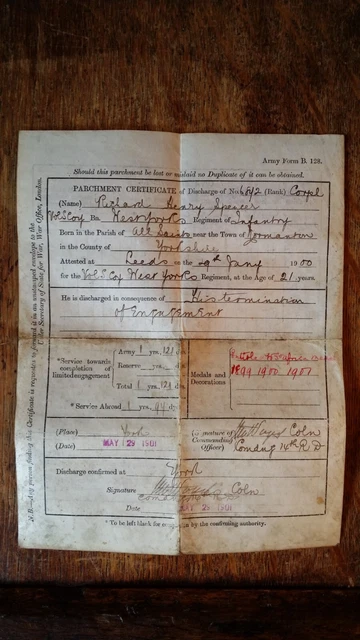 Army Form B. 128.
Should this parchment be lost or mislaid no Duplicate of it can be obtained.
PARCHMENT CERTIFICATE of Discharge of No. (Rank) Corpl
(Name) Richard Henry Spencer
Vol S Coy Bn. West Yorks Regiment of Infantry
Born in the Parish of All Saints near the Town of
in the County of Yorkshire
Attested at Leeds on the Jany 1900
for the Vol S Coy West Yorks Regiment, at the Age of 21 years.
He is discharged in consequence of His termination
of Engagement
*Service towards completion of limited engagement
Army 1 yrs. 121 ds.
Reserve yrs.
Total 1 yrs. 121 ds.
* Service Abroad 1 yrs. 94 ds.
Medals and Decorations
1899 1900 1901
(Place) York
(Date) MAY 29 1901
Signature of Commanding Officer) Coln
Comdg 14th R D
Discharge confirmed at York
Signature Coln
Date MAY 29 1901
* To be left blank for completion by the confirming authority.
N.B.—Any person finding this Certificate is requested to forward it in an unstamped envelope to the
Under Secretary of State for War, War Office, London.